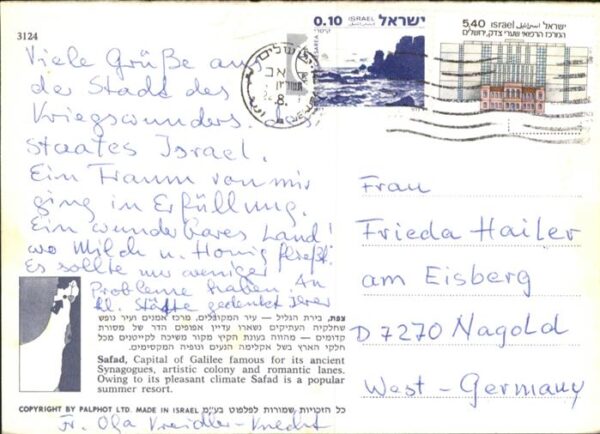 3124
Viele Grüße aus
der Stadt des
Kriegswunders.
Staates Israel.
Ein Traum von mir
ging in Erfüllung.
Ein wunderbares Land!
wo Milch u. Honig fließt.
Es sollte nur weniger
Probleme haben. An
hl. Stätte gedenkt Ihrer
Fr. Olga Kreidler-Knecht
0.10 ISRAEL ישראל
CAESAREA
5.40 ISRAEL ישראל
המרכז הרפואי שערי צדק, ירושלים
ירושלים
Frau
Frieda Hailer
am Eisberg
D 7270 Nagold
West-Germany
צפת, בירת הגליל — עיר המקובלים, מרכז אמנים ועיר נופש
שחלקיה העתיקים נשארו עדיין אפופים הדר של מסורת
קדומים — מהווה בעונת הקיץ מקור משיכה לקייטנים מכל
חלקי הארץ בשל אקלימה הנעים ונופיה המקסימים.
Safad, Capital of Galilee famous for its ancient
Synagogues, artistic colony and romantic lanes.
Owing to its pleasant climate Safad is a popular
summer resort.
COPYRIGHT BY PALPHOT LTD. MADE IN ISRAEL כל הזכויות שמורות לפלפוט בע"מ